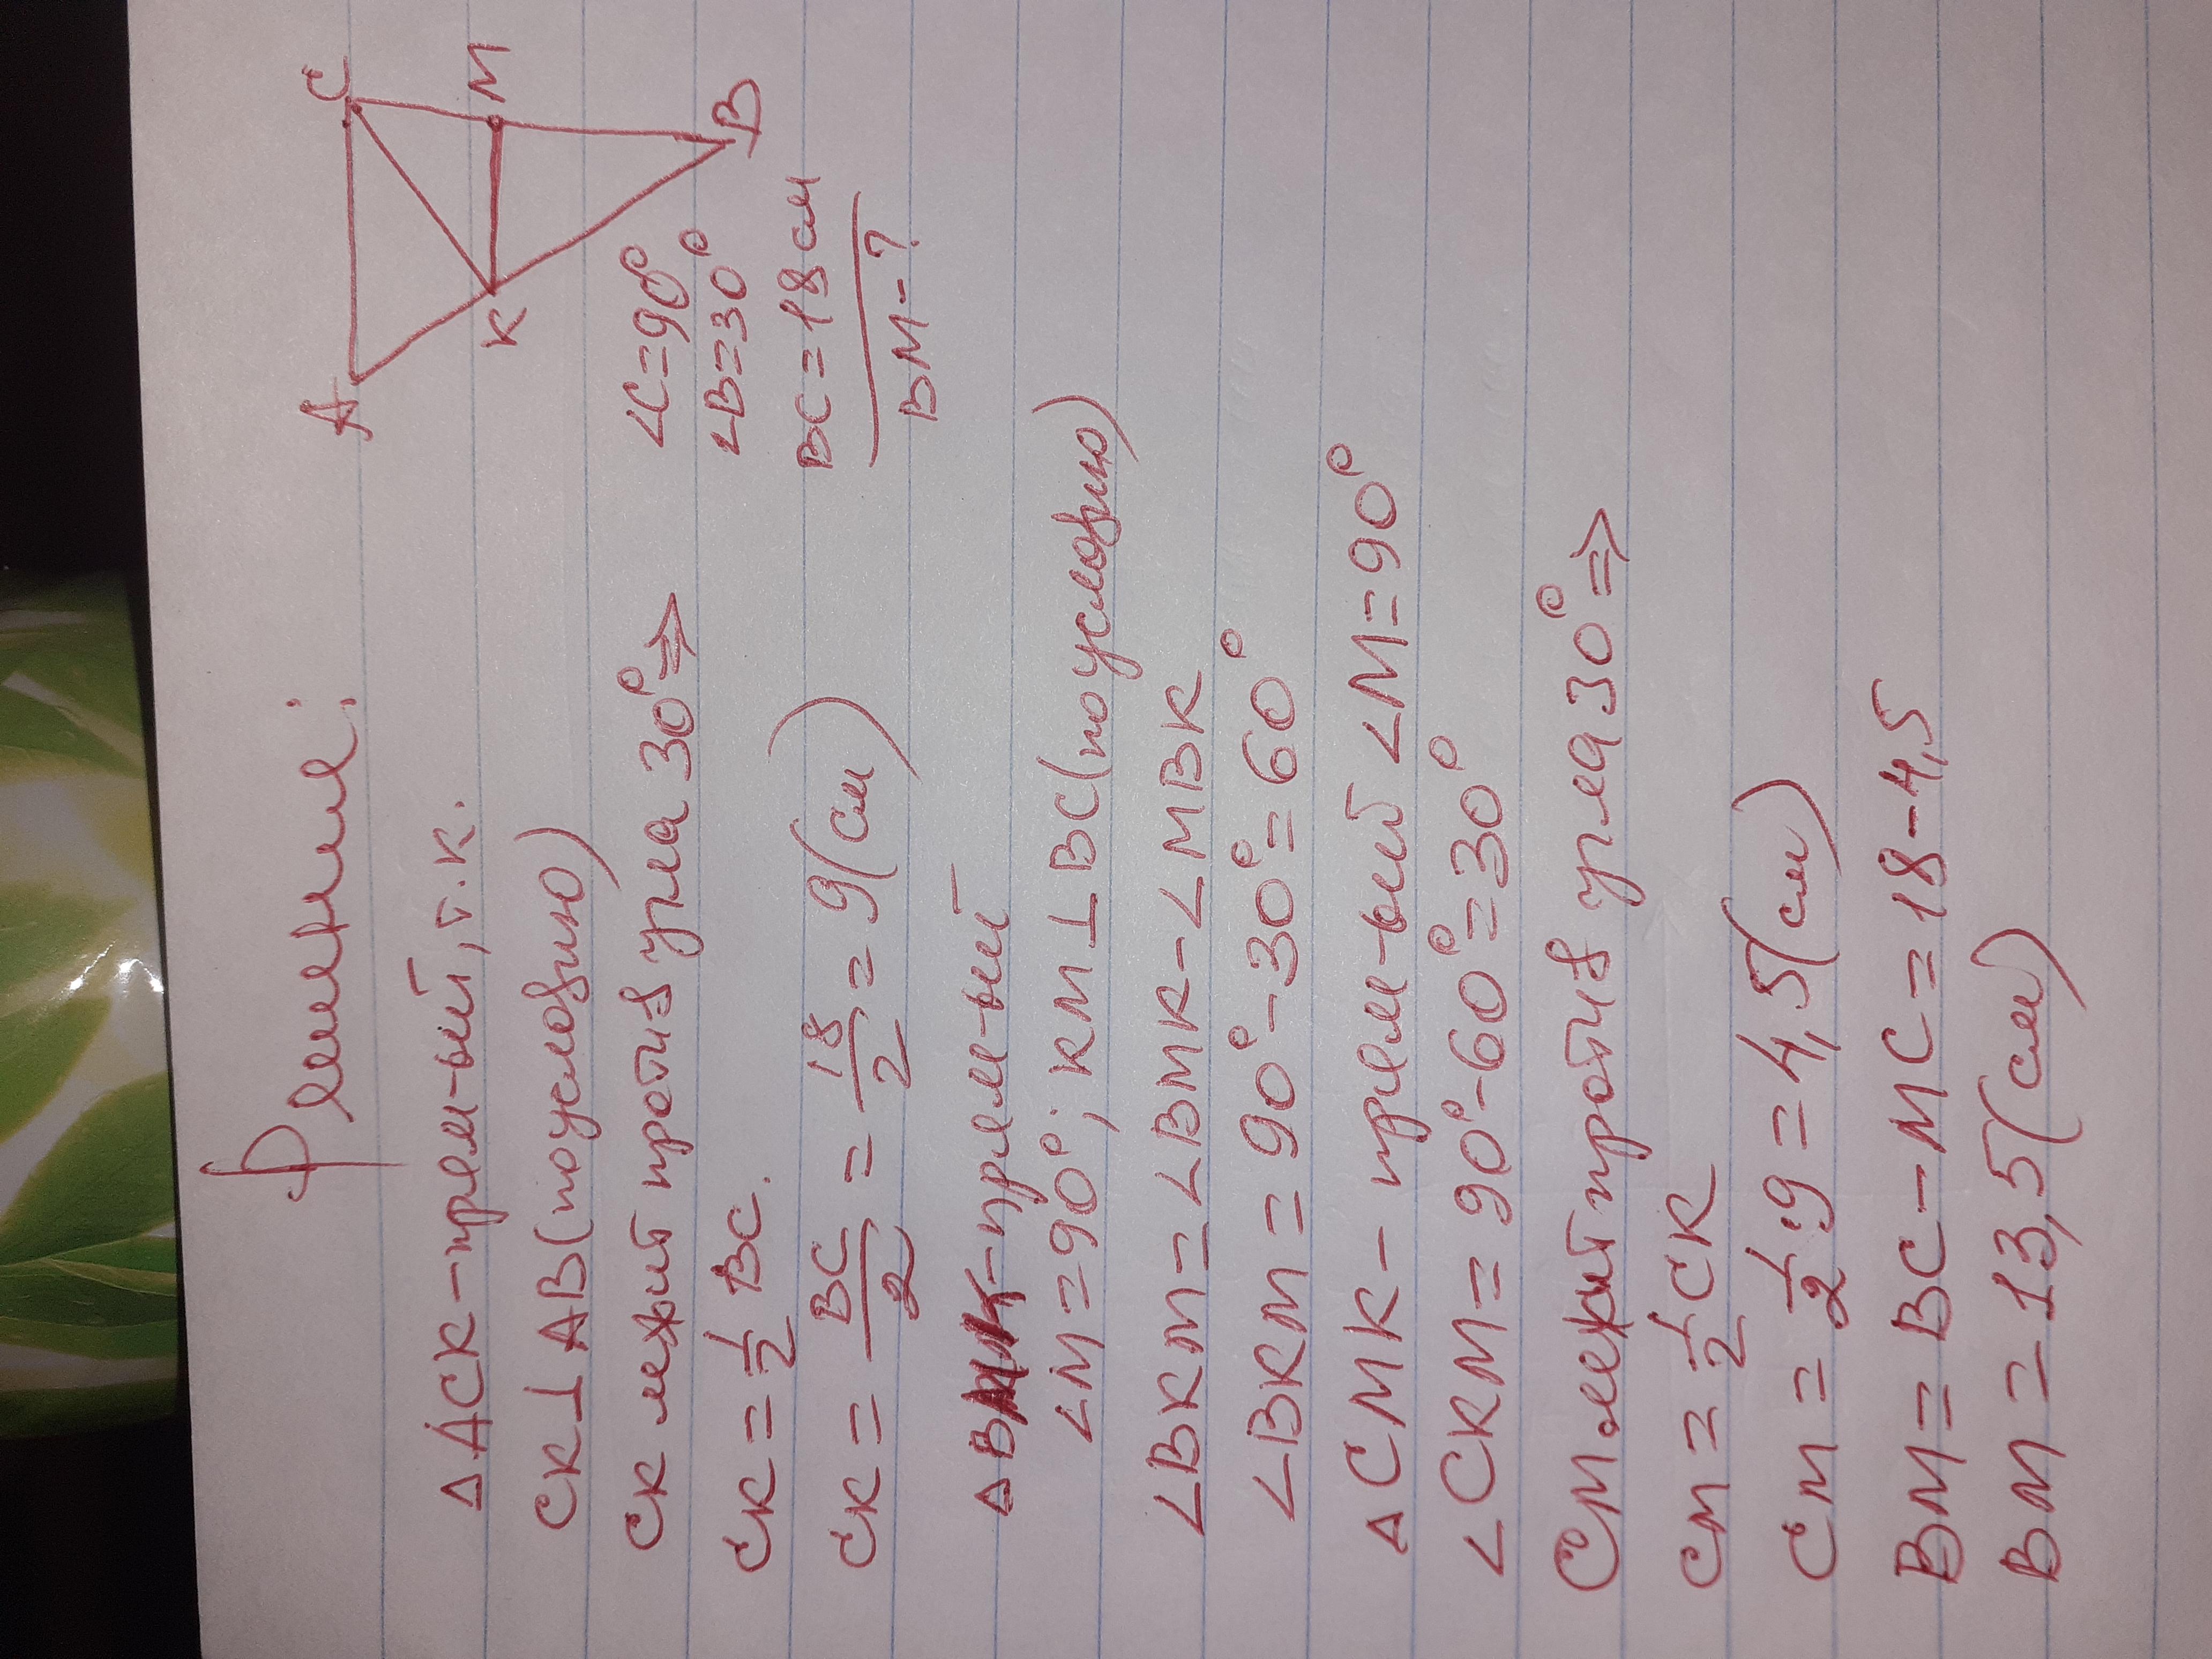 Решение:
A
C
K
M
B
∠C=90°
∠B=30°
BC=18см
BM-?
△ACK-прям-ый, т.к.
CK⊥AB(по условию)
CK лежит против угла 30°⇒
CK=1/2 BC.
CK=BC/2=18/2=9(см)
△BMK-прям-ый
∠M=90°; KM⊥BC(по условию)
∠BKM=∠BMK-∠MBK
∠BKM=90°-30°=60°
△CMK-прям-ый ∠M=90°
∠CKM=90°-60°=30°
CM лежит против угла 30°⇒
CM=1/2 CK
CM=1/2·9=4,5(см)
BM=BC-MC=18-4,5
BM=13,5(см)